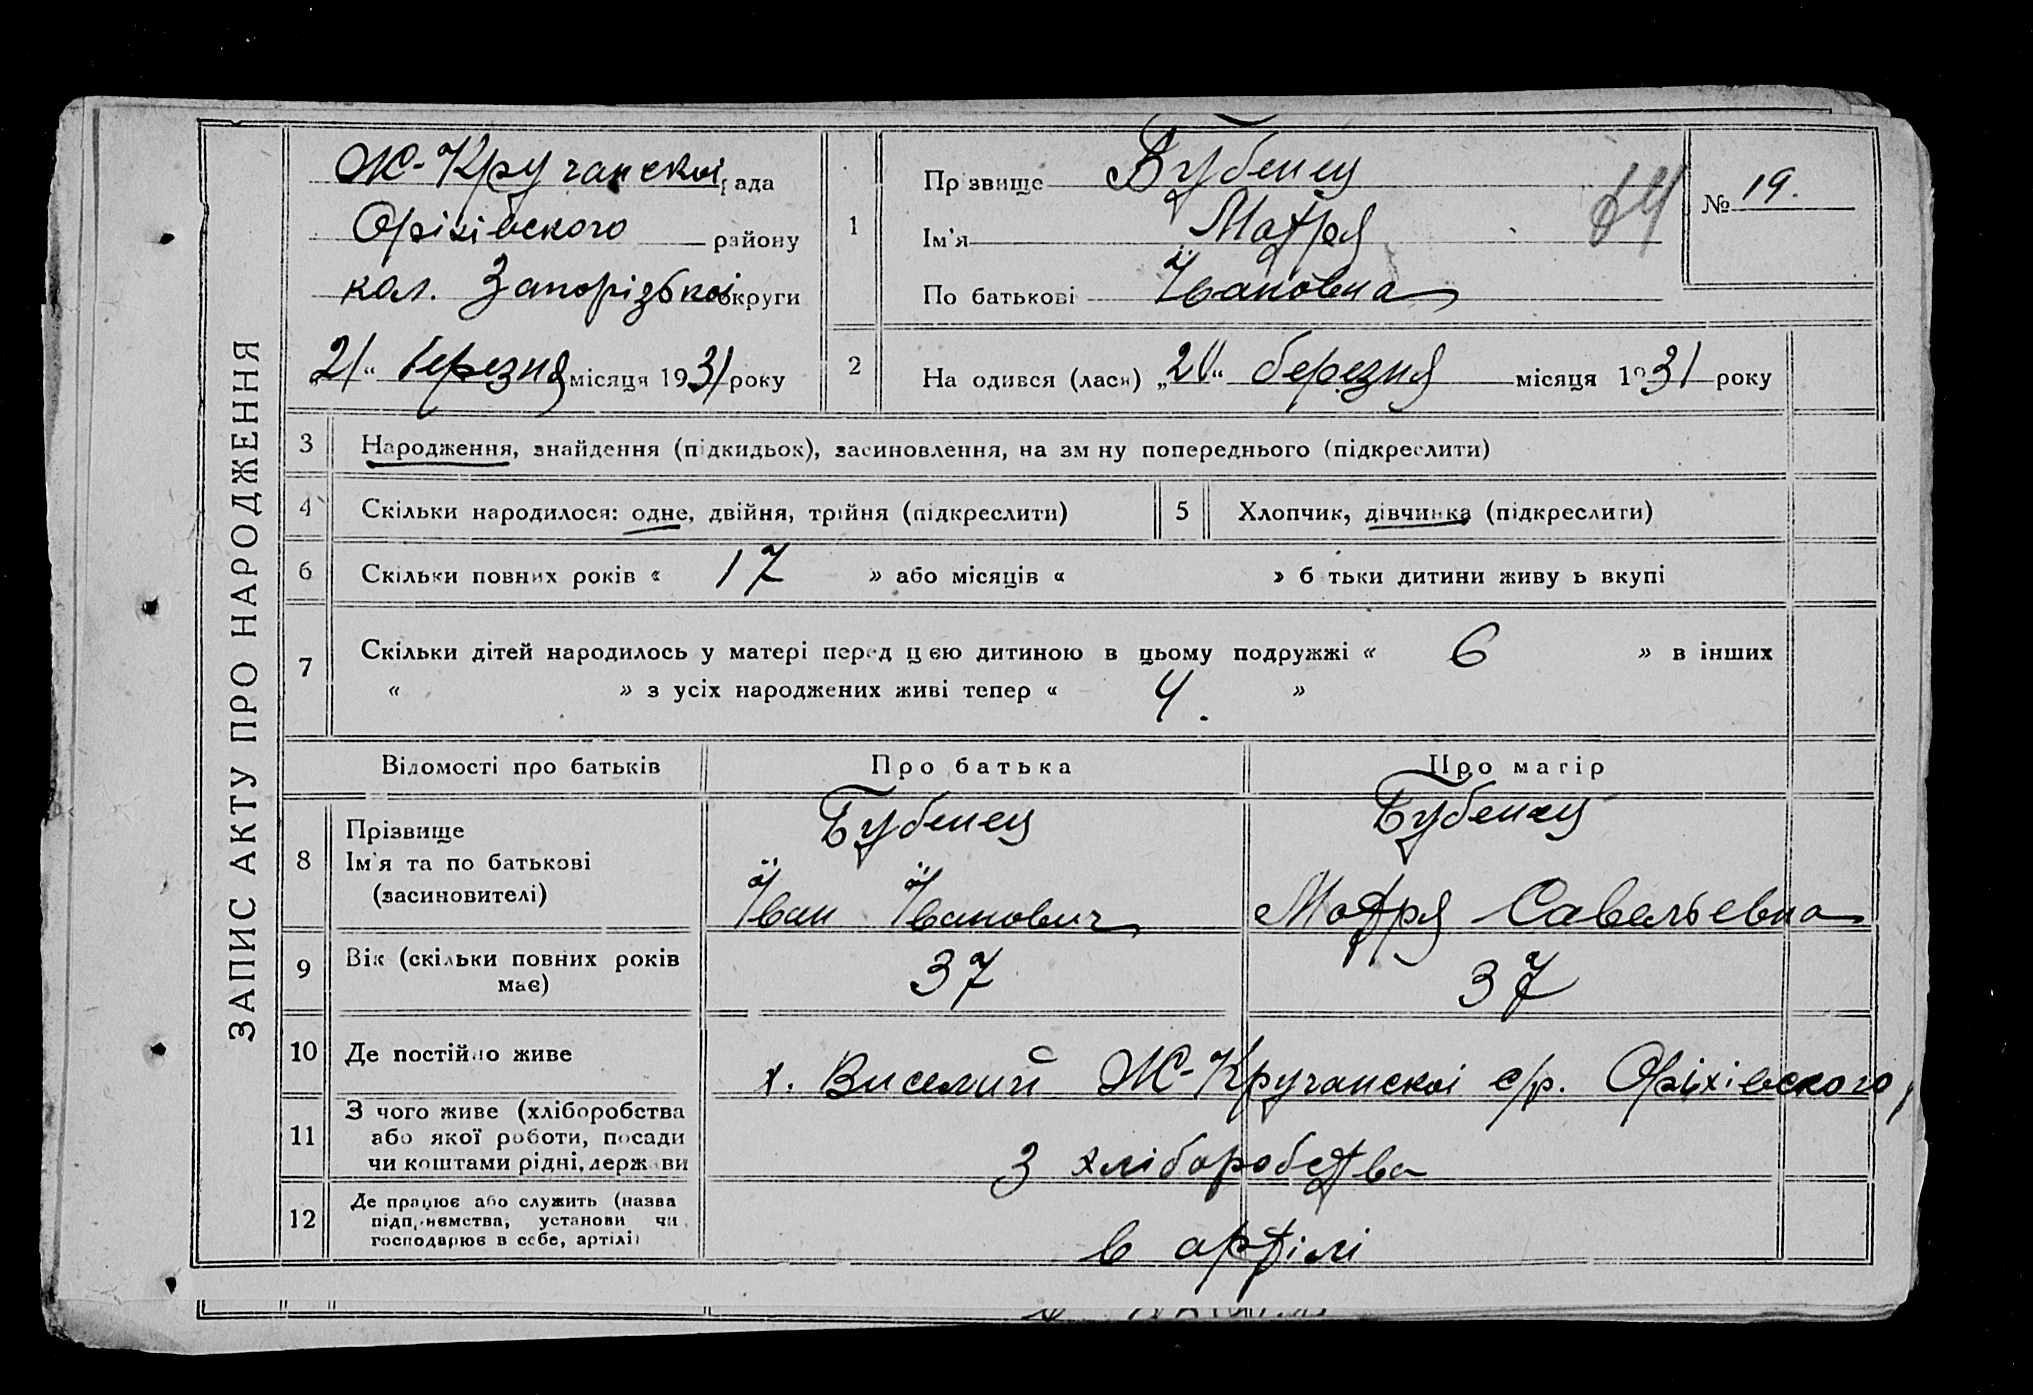 ЗАПИС АКТУ ПРО НАРОДЖЕННЯ
Ж-Кручанскої рада
Оріхівского району
кол. Запорізької округи
„21“ березня місяця 1931 року
1
Прізвище Бубенец
Ім’я Мотря
По батькові Івановна
64
№ 19.
2
На одився (лася) „20“ березня місяця 1931 року
3 Народження, знайдення (підкидьок), засиновлення, на зм ну попереднього (підкреслити)
4 Скільки народилося: одне, двійня, трійня (підкреслити)
5 Хлопчик, дівчинка (підкреслити)
6 Скільки повних років « 17 » або місяців « » б тьки дитини живу ь вкупі
7 Скільки дітей народилось у матері перед цією дитиною в цьому подружжі « 6 » в інших
« » з усіх народжених живі тепер « 4. »
Відомості про батьків Про батька Про матір
8 Прізвище
Ім’я та по батькові
(засиновителі)
Бубенец
Іван Іванович
Бубенец
Мотря Савельевна
9 Вік (скільки повних років
має)
37
37
10 Де постійно живе
х. Виселий Ж-Кручанскоі с/р. Оріхівского р
11 З чого живе (хліборобства
або якої роботи, посади
чи коштами рідні, держави
З хліборобства
12 Де працює або служить (назва
підприємства, установи чи
господарює в себе, артілі)
в артілі